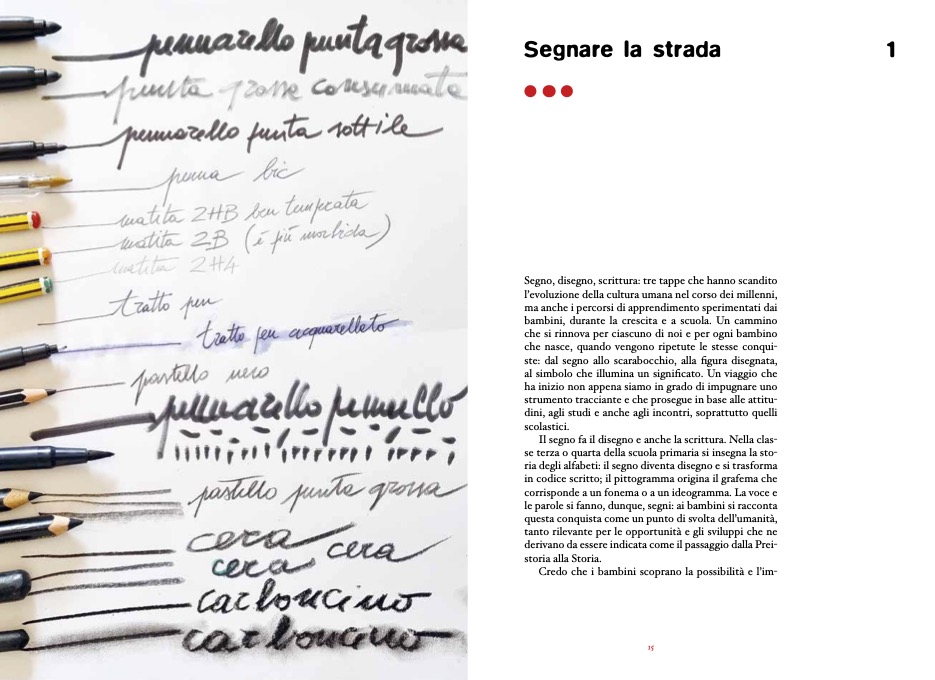 pennarello punta grossa
punta grossa consumata
pennarello punta sottile
penna bic
matita 2HB ben temperata
matita 2B (è più morbida)
matita 2H4
tratto pen
tratto pen acquarellato
pastello nero
pennarello pennello
pastello punta grossa
cera
cera
cera
carboncino
carboncino
Segnare la strada
1
Segno, disegno, scrittura: tre tappe che hanno scandito
l'evoluzione della cultura umana nel corso dei millenni,
ma anche i percorsi di apprendimento sperimentati dai
bambini, durante la crescita e a scuola. Un cammino
che si rinnova per ciascuno di noi e per ogni bambino
che nasce, quando vengono ripetute le stesse conqui-
ste: dal segno allo scarabocchio, alla figura disegnata,
al simbolo che illumina un significato. Un viaggio che
ha inizio non appena siamo in grado di impugnare uno
strumento tracciante e che prosegue in base alle attitu-
dini, agli studi e anche agli incontri, soprattutto quelli
scolastici.
Il segno fa il disegno e anche la scrittura. Nella clas-
se terza o quarta della scuola primaria si insegna la sto-
ria degli alfabeti: il segno diventa disegno e si trasforma
in codice scritto; il pittogramma origina il grafema che
corrisponde a un fonema o a un ideogramma. La voce e
le parole si fanno, dunque, segni: ai bambini si racconta
questa conquista come un punto di svolta dell'umanità,
tanto rilevante per le opportunità e gli sviluppi che ne
derivano da essere indicata come il passaggio dalla Prei-
storia alla Storia.
Credo che i bambini scoprano la possibilità e l'im-
15